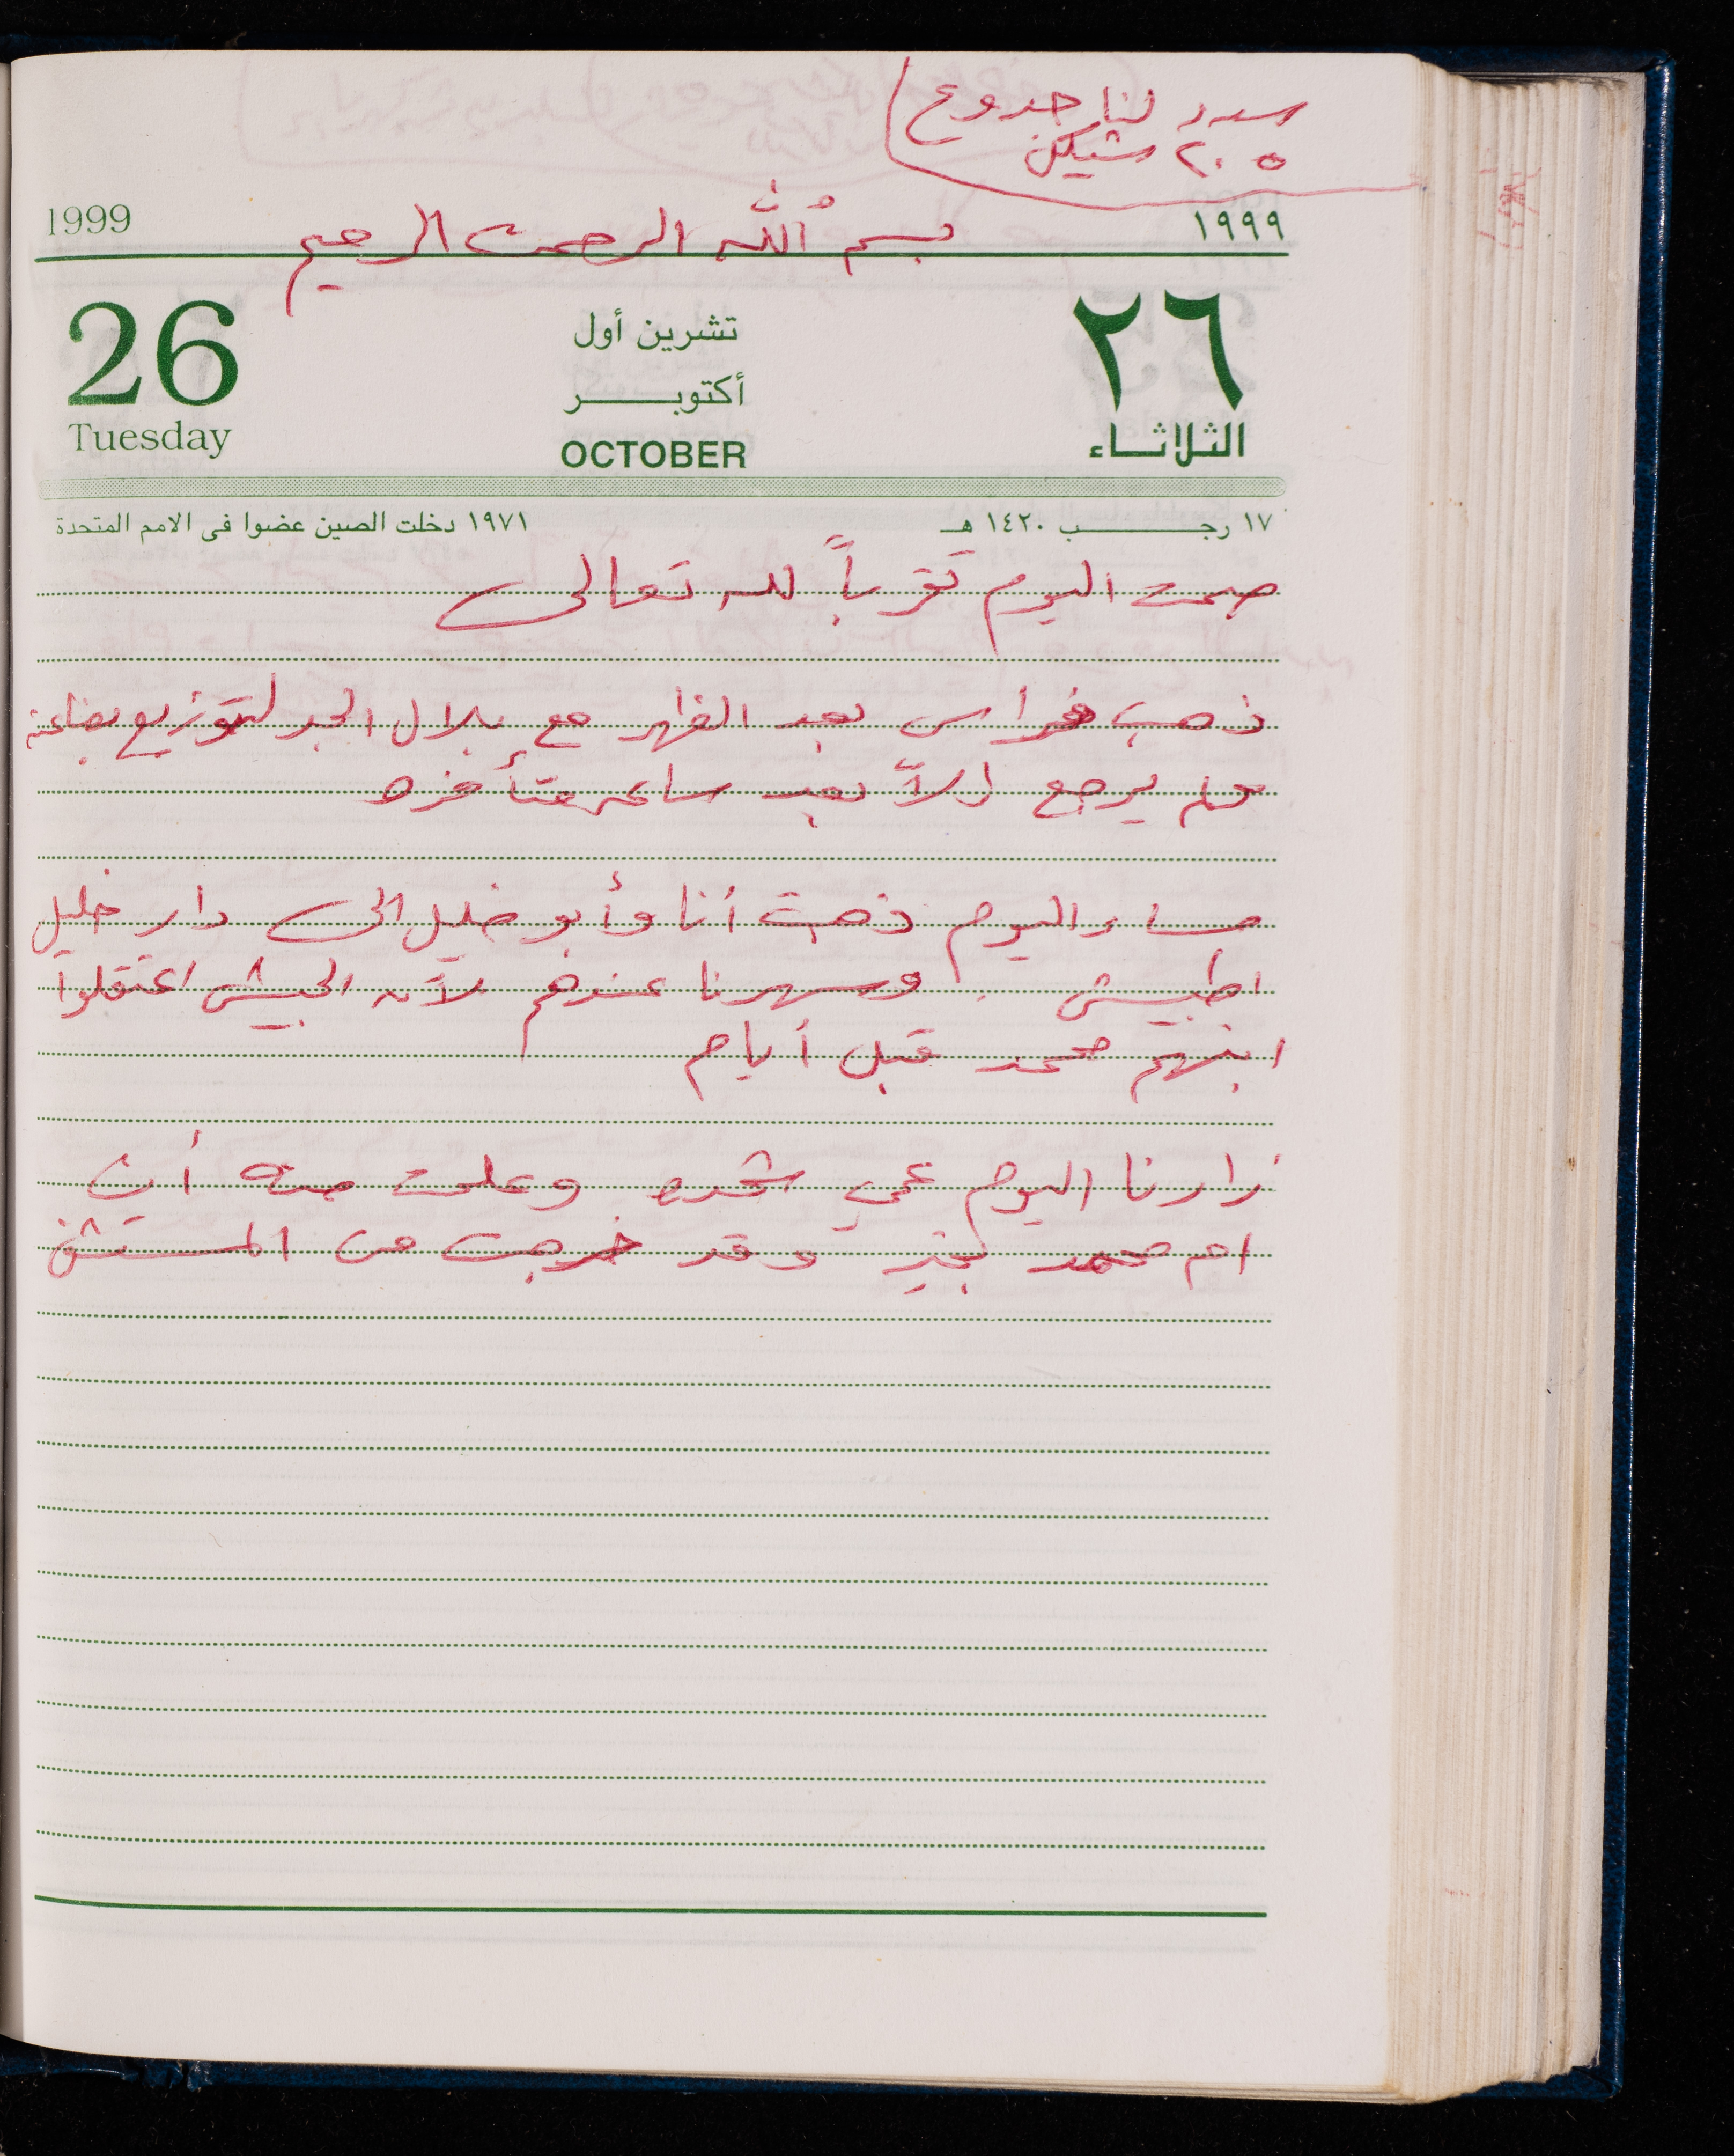 سدد لنا جدوع
٢٠٥ شيكل
1999
١٩٩٩
بسم الله الرحمن الرحيم
26
تشرين أول
٢٦
أكتوبـــر
Tuesday
OCTOBER
الثلاثـاء
١٧ رجــــب ١٤٢٠ هـ
١٩٧١ دخلت الصين عضوا في الامم المتحدة
صمت اليوم تقرباً لله تعالى
ذهب فراس بعد الظهر مع بلال الجد لتوزيع بضاعة
ولم يرجع إلاّ بعد ساعة متأخره
مساء اليوم ذهبت أنا وأبو خليل الى دار خليل
اطبيش وسهرنا عندهم لأن الجيش اعتقلوا
ابنهم محمد قبل أيام
زارنا اليوم عمي شحده وعلمت منه أن
ام محمد بخير وقد خرجت من المستشفى